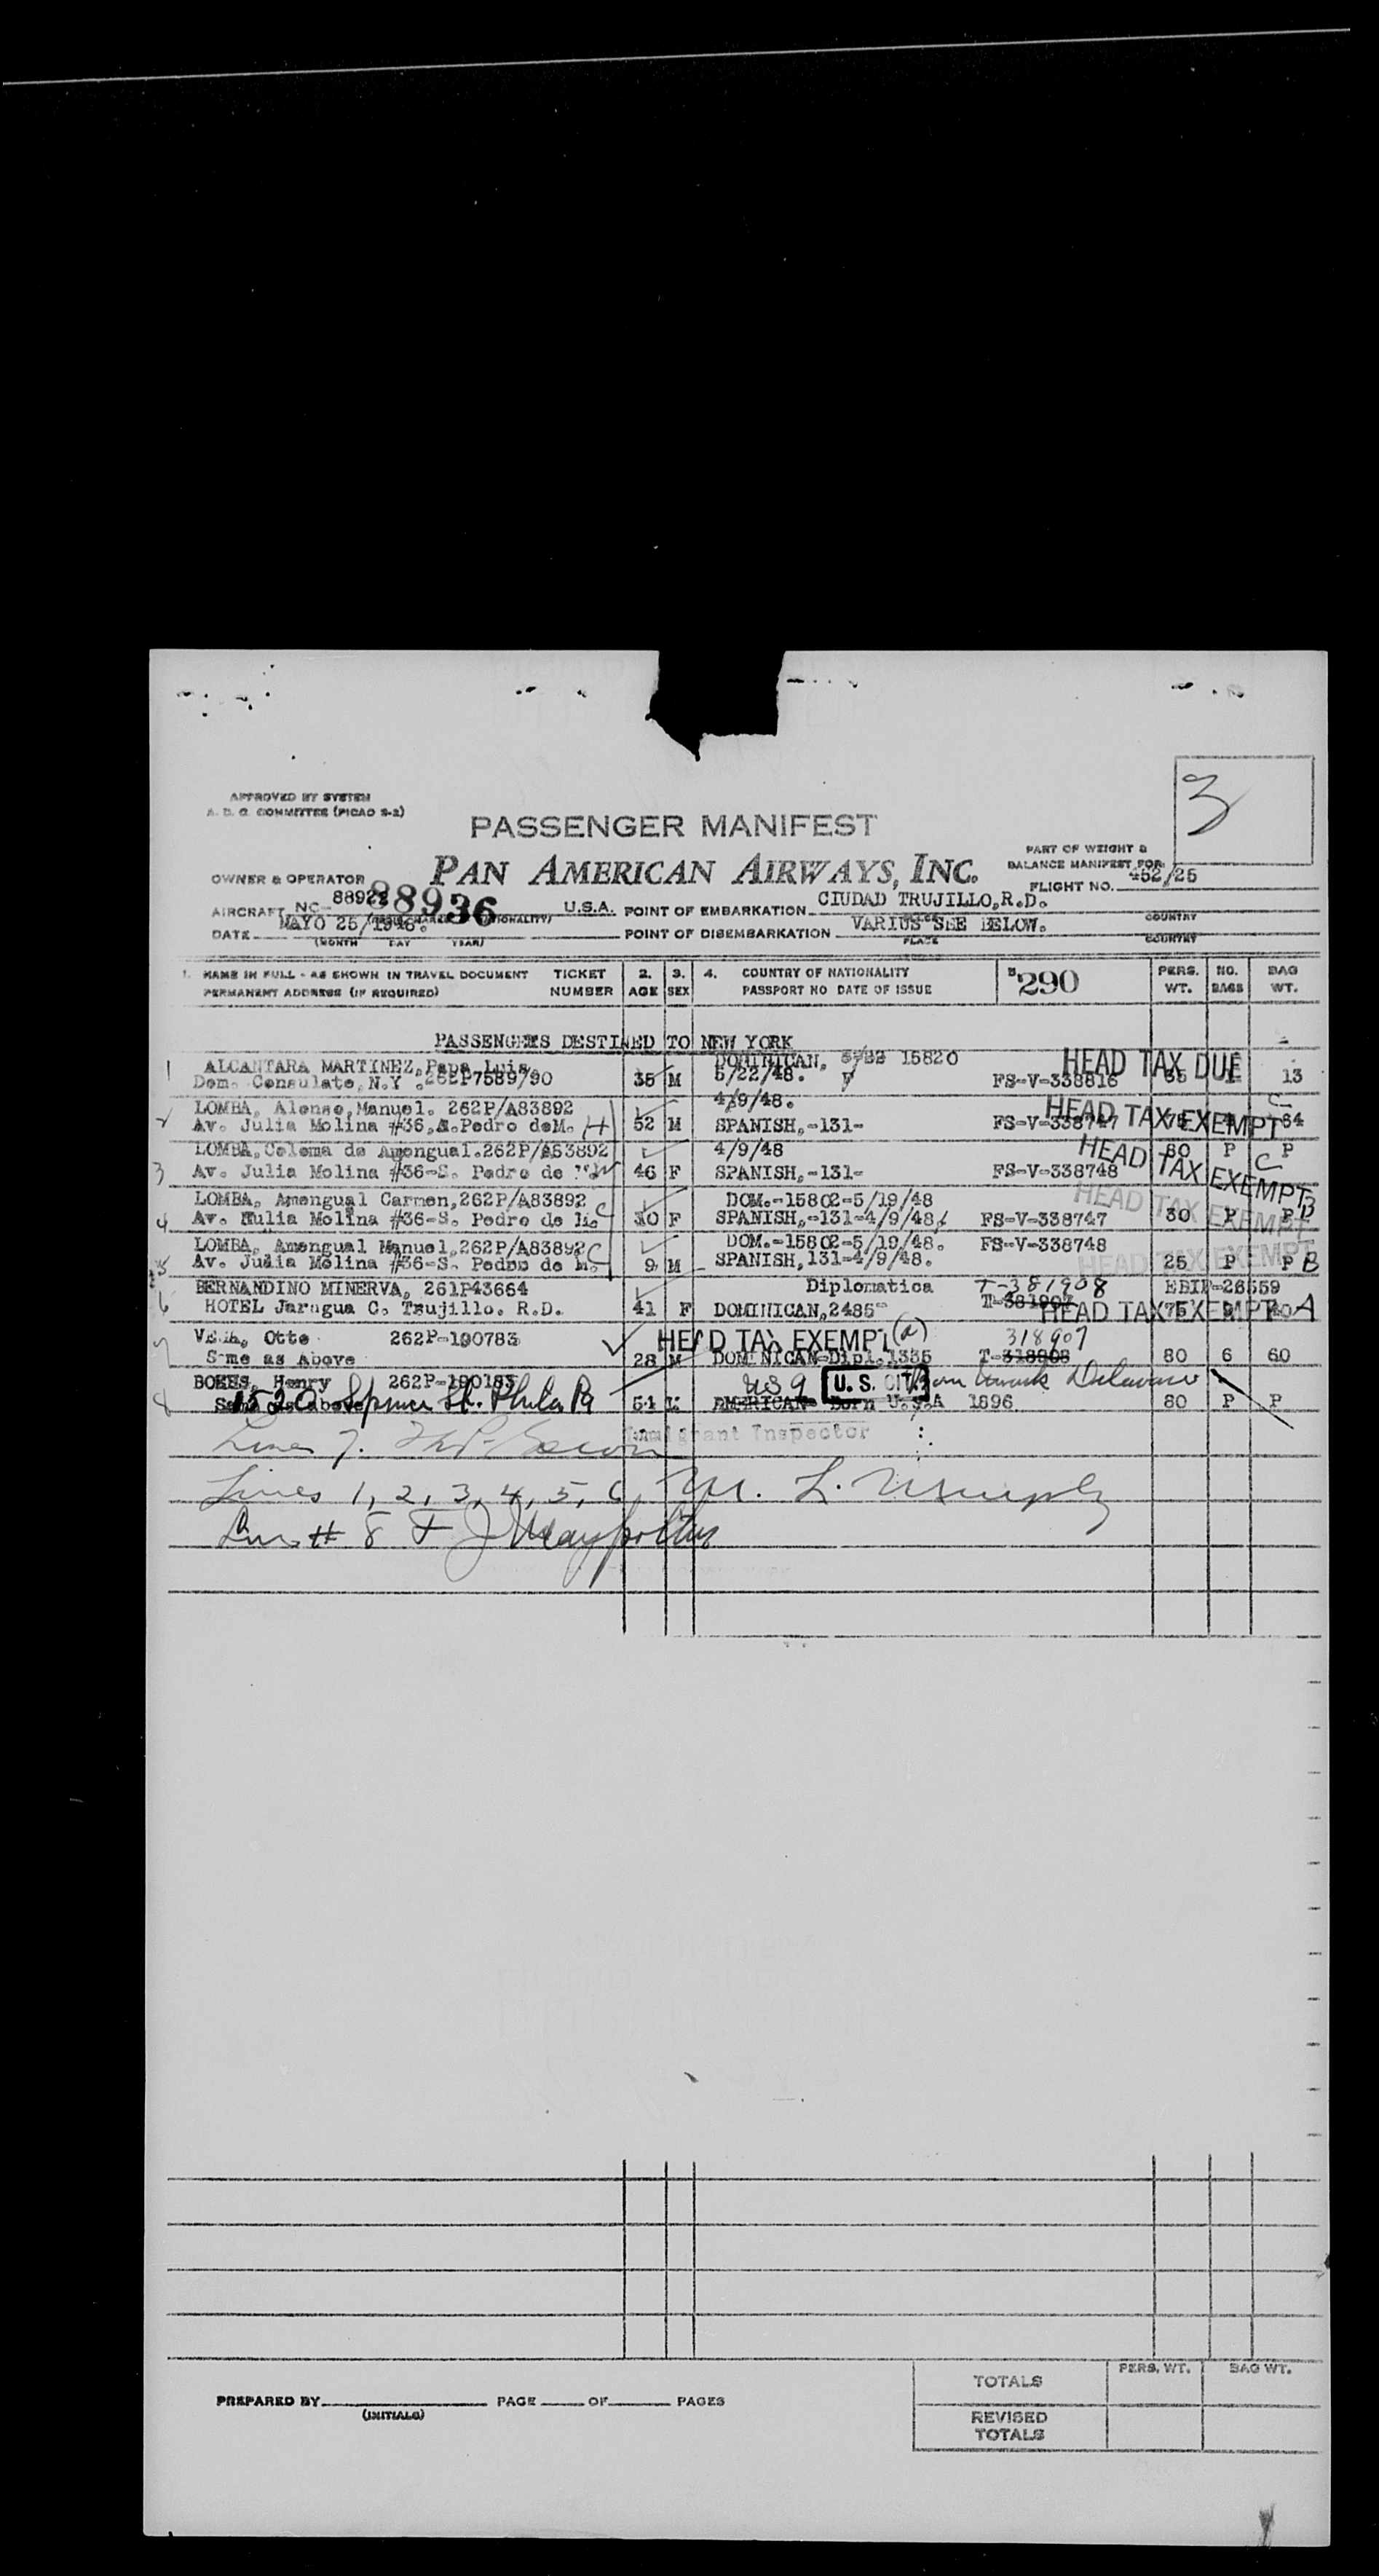 3
APPROVED BY SYSTEM
A. D. C. COMMITTEE (PICAO S-2)
PASSENGER MANIFEST
PART OF WEIGHT &
BALANCE MANIFEST FOR
OWNER & OPERATOR PAN AMERICAN AIRWAYS, INC.
FLIGHT NO. 452/25
AIRCRAFT NC- 88936 U.S.A. POINT OF EMBARKATION CIUDAD TRUJILLO,R.D.
COUNTRY
DATE MAYO 25/ POINT OF DISEMBARKATION VARIUS SEE BELOW.
(MONTH DAY YEAR) PLACE COUNTRY
1. NAME IN FULL - AS SHOWN IN TRAVEL DOCUMENT TICKET 2. 3. 4. COUNTRY OF NATIONALITY 290 PERS. NO. BAG
PERMANENT ADDRESS (IF REQUIRED) NUMBER AGE SEX PASSPORT NO DATE OF ISSUE WT. BAGS WT.
PASSENGERS DESTINED TO NEW YORK
1 ALCANTARA MARTINEZ, Papa Luis. DOMINICAN, 15820 HEAD TAX DUE
Dom. Consulate, N.Y. 262P7589/90 35 M 5/22/48. FS-V-338816 13
2 LOMBA, Alonso, Manuel. 262P/A83892 4/9/48. HEAD TAX EXEMPT C
Av. Julia Molina #36, S.Pedro deM. H 52 M SPANISH,-131- FS-V-338747 64
LOMBA, Coloma de Amengual.262P/A83892 4/9/48 80 P P
3 Av. Julia Molina #36-S. Pedro de W 46 F SPANISH,-131- FS-V-338748 HEAD TAX EXEMPT C
LOMBA, Amengual Carmen,262P/A83892 DOM.-15802-5/19/48 HEAD TAX EXEMPT B
4 Av. Julia Molina #36-S. Pedro de M. C 10 F SPANISH,-131-4/9/48, FS-V-338747 30 P P
LOMBA, Amengual Manuel,262P/A83892 C DOM.-15802-5/19/48. FS-V-338748 HEAD TAX EXEMPT
5 Av. Julia Molina #36-S. Pedro de M. 9 M SPANISH,131-4/9/48. 25 P P B
BERNANDINO MINERVA, 261P43664 Diplomatica T-381908 EBIF-26559
6 HOTEL Jaragua C. Trujillo. R.D. 41 F DOMINICAN,2485- HEAD TAX EXEMPT A
VEGA, Otto 262P-190783 HEAD TAX EXEMPT (a) 318907
7 Same as Above 28 M DOMINICAN-Dipl.1335 T-318908 80 6 60
BOKES, Henry 262P-190185 U. S. CIT. Born Delaware
8 1520 Spruce St. Phila Pa 51 AMERICAN Born U.S.A 1896 80 P P
Immigrant Inspector
Line 7.
Lines 1, 2, 3, 4, 5, 6, M. L. Murphy
Line # 8
TOTALS PERS. WT. BAG WT.
PREPARED BY PAGE OF PAGES
(INITIALS)
REVISED
TOTALS